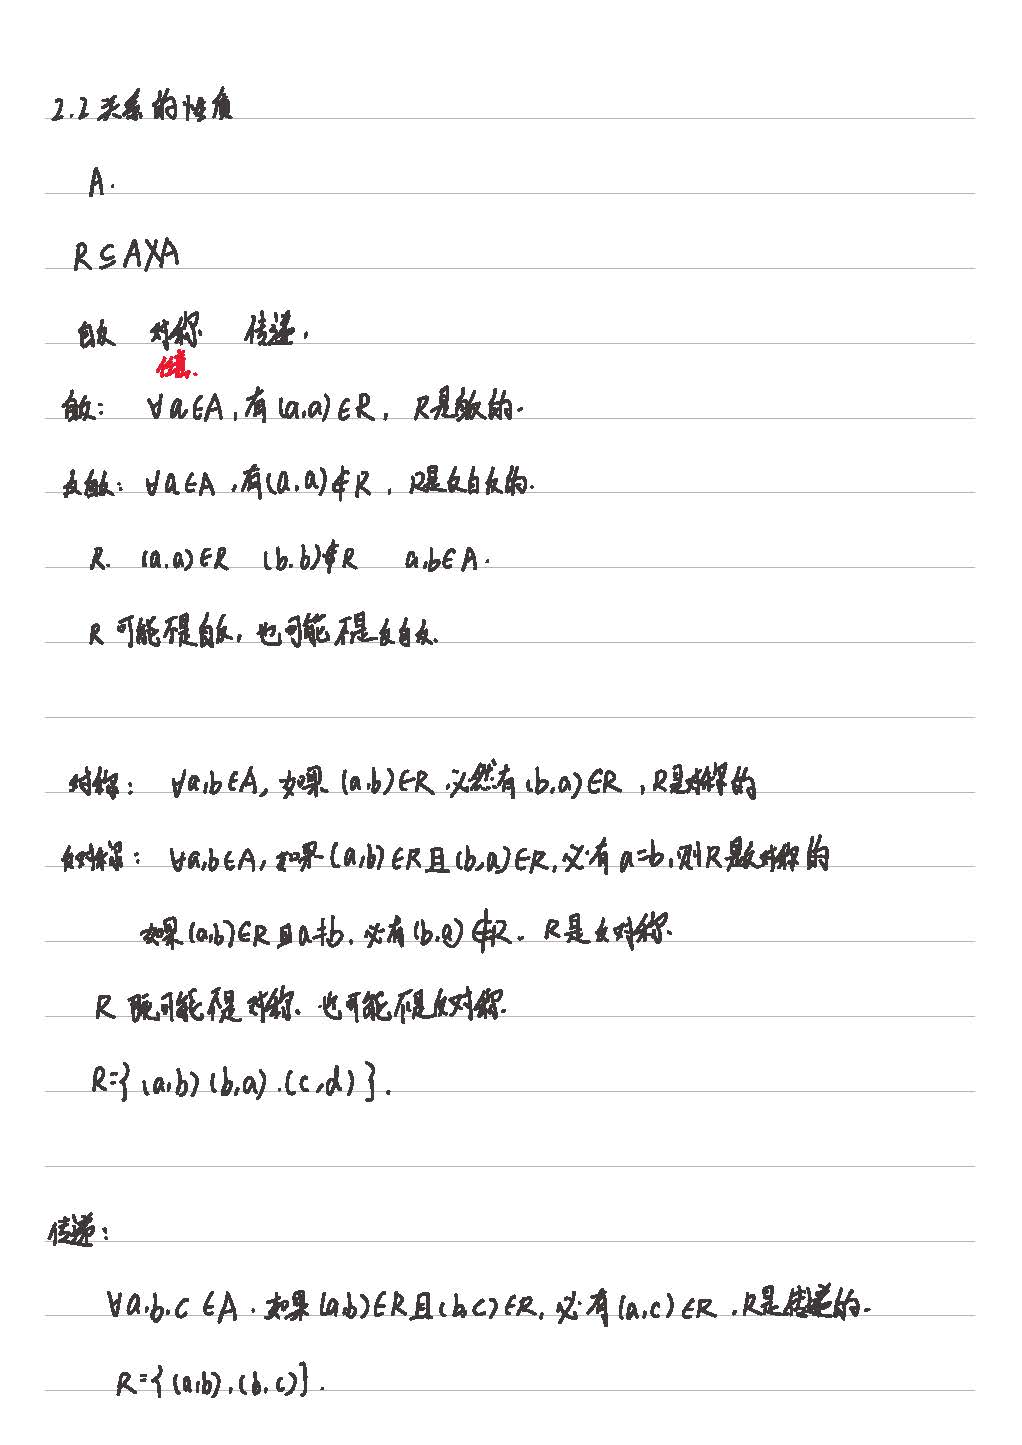 2.2 关系的性质
A.
R ⊆ A×A
自反 对称 传递.
任意.
自反: ∀a∈A, 有(a,a)∈R, R是自反的.
反自反: ∀a∈A, 有(a,a)∉R, R是反自反的.
R. (a,a)∈R (b,b)∉R a,b∈A.
R可能不是自反, 也可能不是反自反.
对称: ∀a,b∈A, 如果(a,b)∈R, 必然有(b,a)∈R, R是对称的
反对称: ∀a,b∈A, 如果(a,b)∈R且(b,a)∈R, 必有a=b, 则R是反对称的
如果(a,b)∈R且a≠b, 必有(b,a)∉R. R是反对称.
R 既可能不是对称、也可能不是反对称.
R={(a,b)(b,a).(c,d)}.
传递:
∀a,b,c∈A. 如果(a,b)∈R且(b,c)∈R, 必有(a,c)∈R. R是传递的.
R={(a,b),(b,c)}.